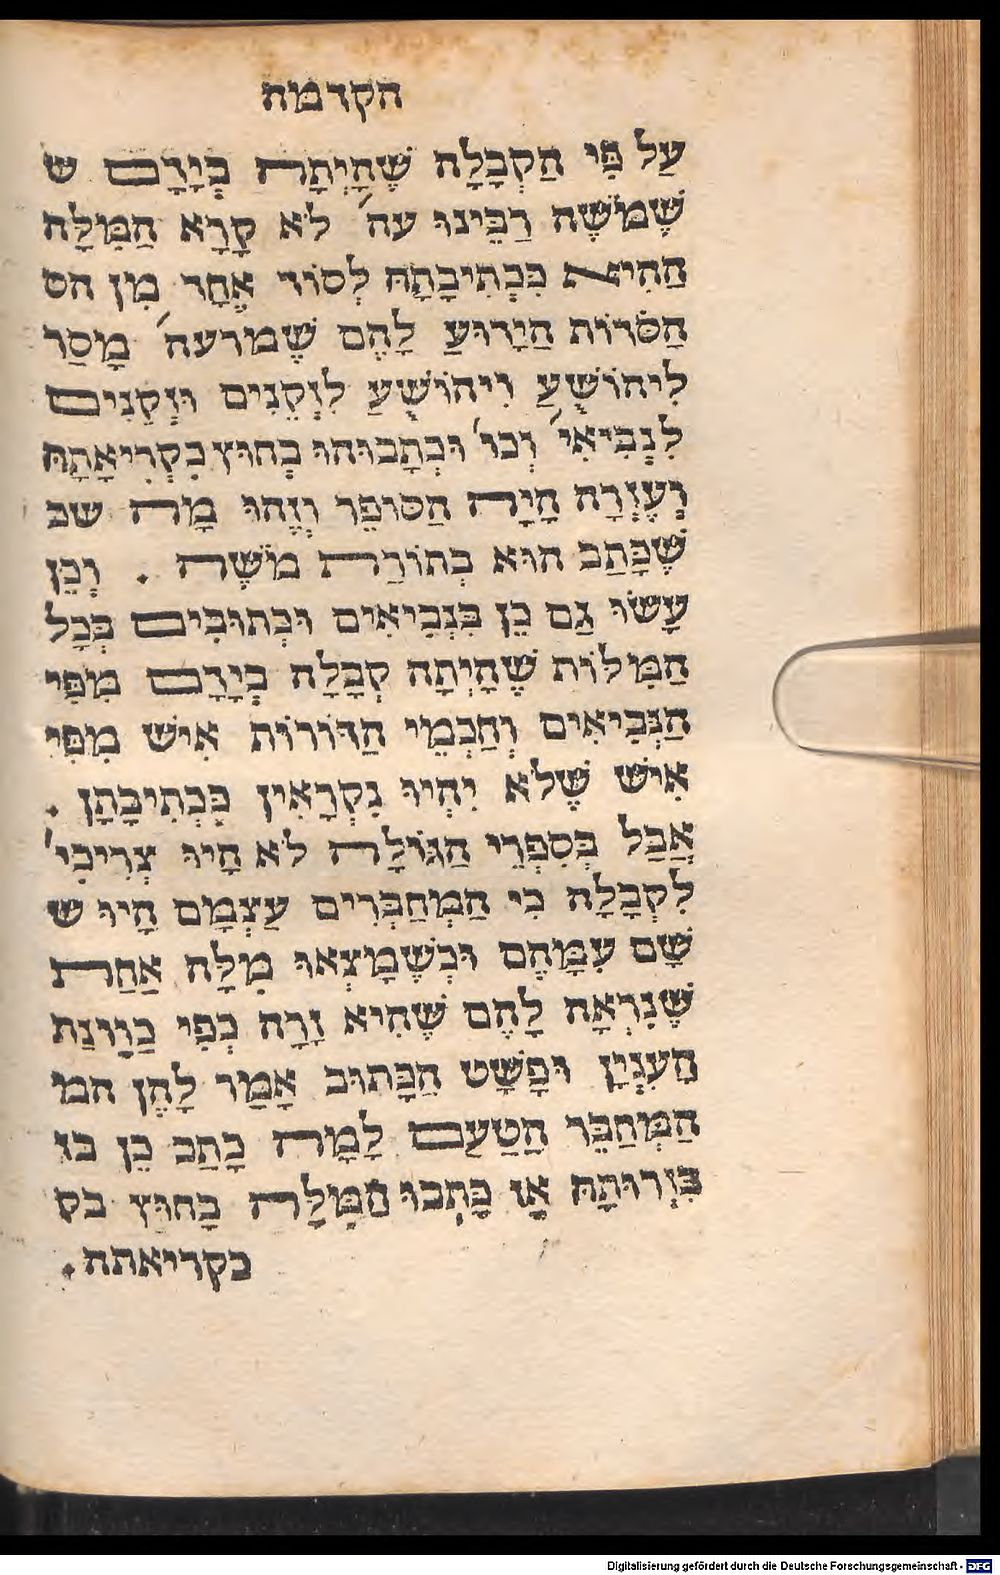 הקדמה
עַל פִּי הַקַבָּלָה שֶׁהָיְתָה בְּיָדָם ש
שֶׁמֹשֶׁה רַבֵּינוּ עה׳ לֹא קָרָא הַמִּלָּה
הַהִיא כִּכְתִיבָתָהּ לְסוֹד אֶחָד מִן הס
הַסֹּדוֹת הַיָּדוּעַ לָהֶם שֶׁמרעה׳ מָסַר
לִיהוֹשֻׁעַ וִיהוֹשֻׁעַ לִזְקֵנִים וּזְקֵנִים
לִנְבִיאִי׳ וְכוּ׳ וּכְתָבוּהוּ בְּחוּץ כִּקְרִיאָתָהּ
וְעֶזְרָה הָיָה הַסּוֹפֵר וְזֶהוּ מָה שכ
שֶׁכָּתַב הוּא בְּתוֹרַת מֹשֶׁה . וְכֵן
עָשׂוּ גַם כֵּן בִּנְבִיאִים וּכְתוּבִים בְּכָל
הַמִּלוֹת שֶׁהָיְתָה קַבָּלָה בְּיָדָם מִפִּי
הַנְּבִיאִים וְחַכְמֵי הַדּוֹרוֹת אִישׁ מִפִּי
אִישׁ שֶׁלֹא יִהְיוּ נִקְרָאִין כִּכְתִיבָתָן .
אֲבָל בְּסִפְרֵי הַגּוֹלָה לֹא הָיוּ צְרִיכִי׳
לְקַבָּלָה כִּי הַמְחַבְּרִים עַצְמָם הָיוּ ש
שָׁם עִמָּהֶם וּכְשֶׁמָּצְאוּ מִלָּה אַחַת
שֶׁנִּרְאָה לָהֶם שֶׁהִיא זָרָה כְּפִי כַוָּונַת
הָעִנְיָן וּפְשָׁט הַכָּתוּב אָמַר לָהֶן המ
הַמְּחַבֵּר הַטַעַם לָמָּה כָּתַב כֵּן בז
בְּזָרוּתָהּ אָז כָּתְבוּ הַמִּלָּה בַּחוּץ כק
כקריאתה .
Digitalisierung gefördert durch die Deutsche Forschungsgemeinschaft - DFG